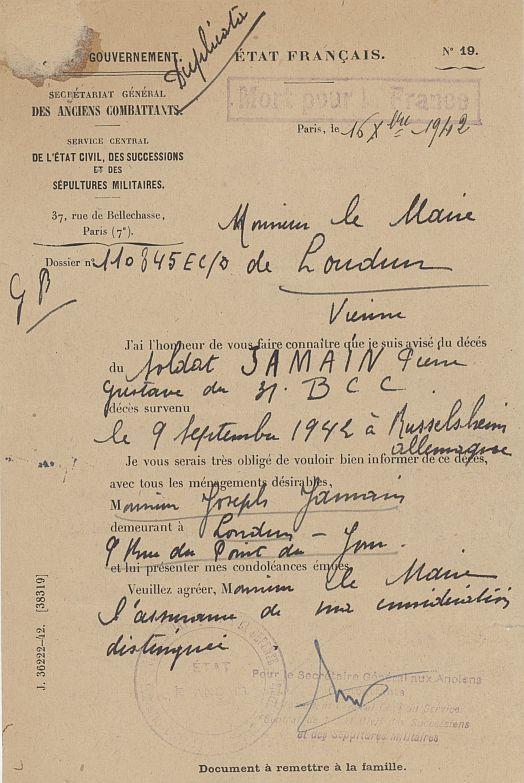 Duplicata
GOUVERNEMENT. ÉTAT FRANÇAIS. N° 19.
SECRÉTARIAT GÉNÉRAL
DES ANCIENS COMBATTANTS.
Mort pour la France
Paris, le 16 Xbre 1942
SERVICE CENTRAL
DE L'ÉTAT CIVIL, DES SUCCESSIONS
ET DES
SÉPULTURES MILITAIRES.
37, rue de Bellechasse,
Paris (7e).
Monsieur le Maire
Dossier n° 110845 EC/D de Loudun
GB
Vienne
J'ai l'honneur de vous faire connaître que je suis avisé du décés
du soldat JAMAIN Pierre
Gustave du 31. B C C.
décès survenu
le 9 Septembre 1942 à Russelsheim
allemagne
Je vous serais très obligé de vouloir bien informer de ce décès,
avec tous les ménagements désirables,
Monsieur Joseph Jamain
demeurant à Loudun –
9 Rue du Point du Jour.
et lui présenter mes condoléances émues.
Veuillez agréer, Monsieur le Maire
l'assurance de ma considération
distinguée
ÉTAT
Pour le Secrétaire Général aux Anciens
Successions
et des Sépultures Militaires
J. 36222-42. [38319]
Document à remettre à la famille.